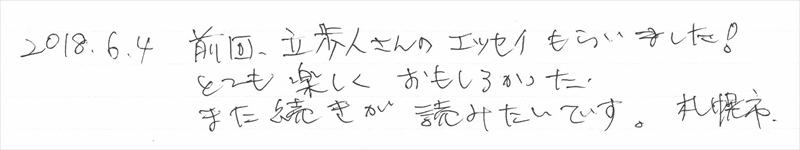 2018.6.4 前回、立歩人さんの エッセイ もらいました!
とても 楽しく おもしろかった.
また 続きが 読みたいです。 札幌市.